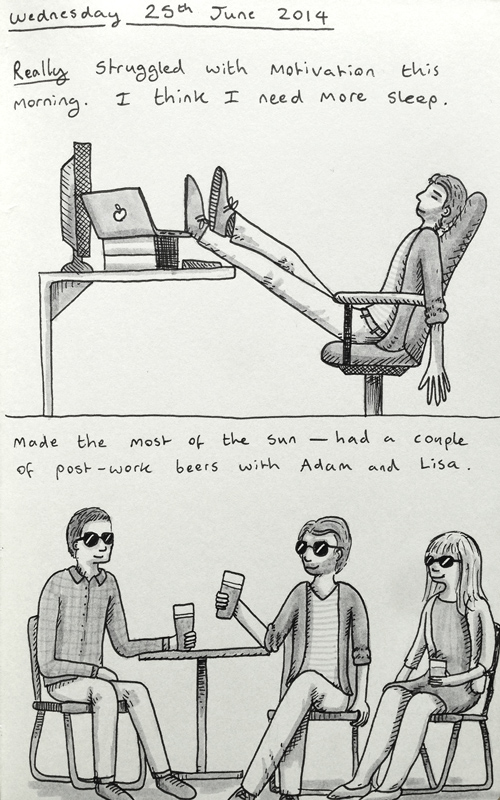 Wednesday 25th June 2014
Really struggled with motivation this
morning. I think I need more sleep.
Made the most of the sun — had a couple
of post-work beers with Adam and Lisa.